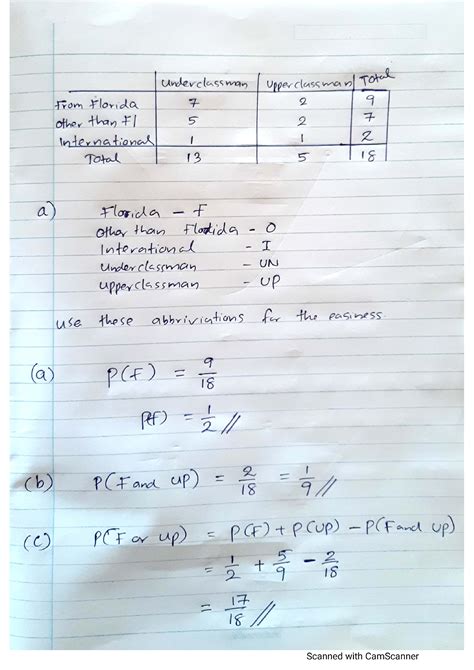 Underclassman Upperclassman Total
From Florida 7 2 9
Other than Fl 5 2 7
International 1 1 2
Total 13 5 18
a) Florida - F
Other than Florida - O
Interational - I
Underclassman - UN
Upperclassman - UP
use these abbriviations for the easiness.
(a) P(F) = 9/18
P(F) = 1/2 //
(b) P(F and UP) = 2/18 = 1/9 //
(c) P(F or UP) = P(F) + P(UP) - P(F and UP)
= 1/2 + 5/9 - 2/18
= 17/18 //
Scanned with CamScanner